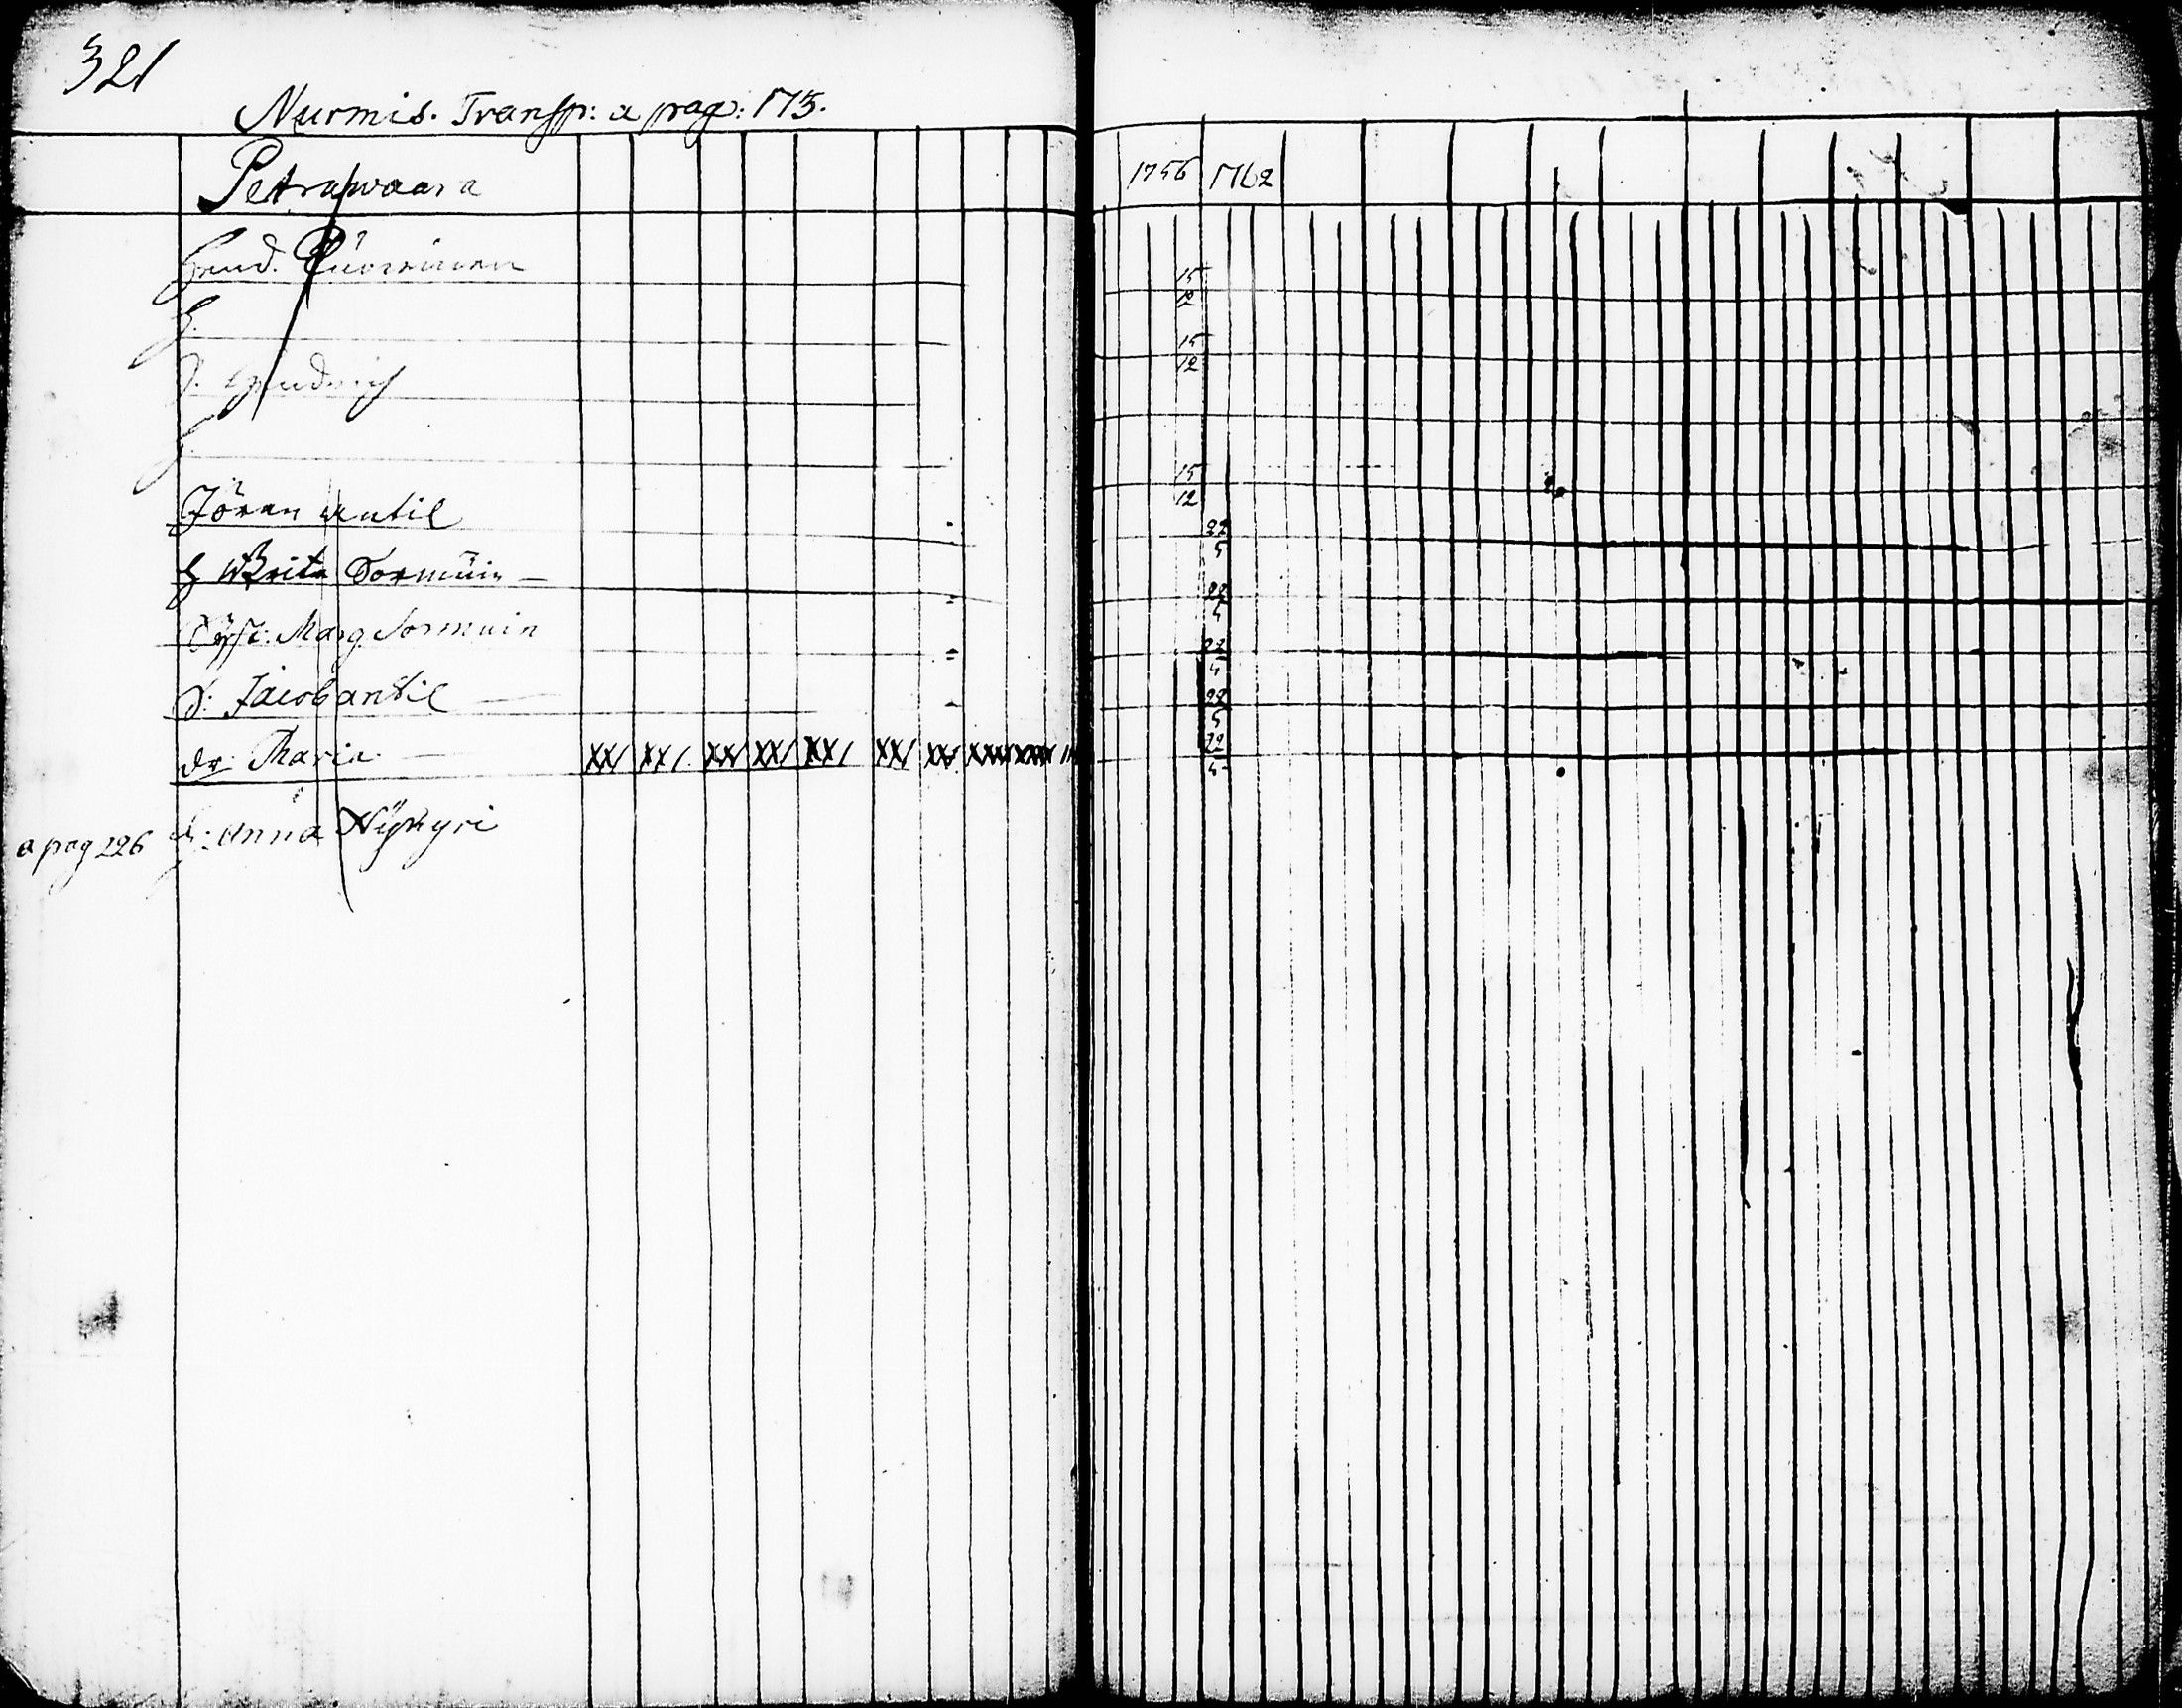 321
Nurmis. Transp: a pag: 173.
Petrawaara
1756 1762
Hend.
15
12
H.
15
12
S. Hendrich
H.
15
12
Jöran Antil
22
5
H Brita Sormuin
22
4
Syst: Marg Sormuin
22
4
S: Jacob antil
22
5
dr Maria XX/ XX/ XX/ XX/ XX/ XX/ XX/
22
4
a pag 226 H: Anna Nykyri